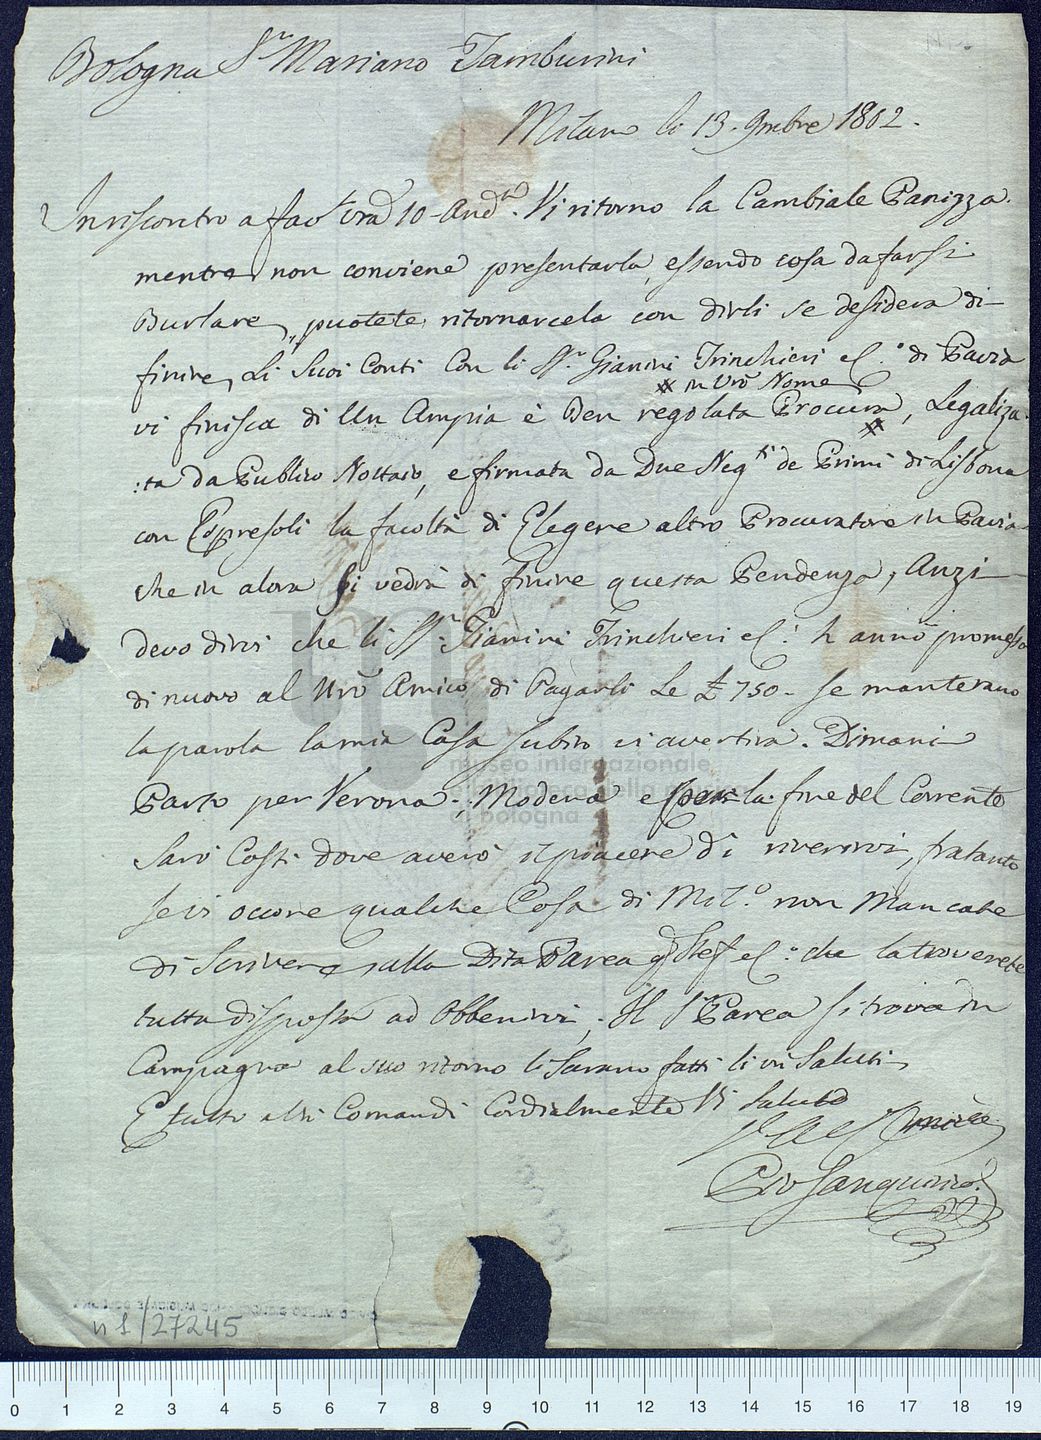 Bologna Sr Mariano Tamburini
Milano li 13. 9mbre 1802.
In riscontro a favt vra 10 Andte. Vi ritorno la Cambiale Panizza.
mentre non conviene presentarla, essendo cosa da farsi
Burlare, puotete ritornarcela con dirli se desidera di
finire, Li Suoi Conti Con li SSri Gianini Trinchieri e C.o di Pavia
# in Vro Nome
vi finisca di Un Ampia è Ben regolata Procura #, Legaliza
:ta da Publico Nottaio, e firmata da Due Negti de Primi di Lisbona
con Espresoli la facoltà di Elegere altro Procuratore in Pavia
che in alora si vedrà di finire questa Pendenza, Anzi
devo dirvi che li SSri Gianini Trinchieri e C.i hanno promesso
di nuovo al Vro Amico di Pagarli Le £ 750 - se manterano
la parola la mia Casa subito vi avertirà. Dimani
Parto per Verona. Modena e per la fine del Corrente
Sarò Costi dove averò il piacere di riverirvi, fratanto
se vi occore qualche Cosa di Mil.o non Mancate
di Scrivere alla Dita Parea q Stef e C.o che la troverete
tutta disposta ad Obbenirvi, Il Sr Parea si trova in
Campagna al suo ritorno li Sarano fatti li vri Saluti
E tutto alli Comandi Cordialmente Vi Saluto
Pio Sanquirico
n 1/27245
museo internazionale
e biblioteca della musica
di bologna
0 1 2 3 4 5 6 7 8 9 10 11 12 13 14 15 16 17 18 19